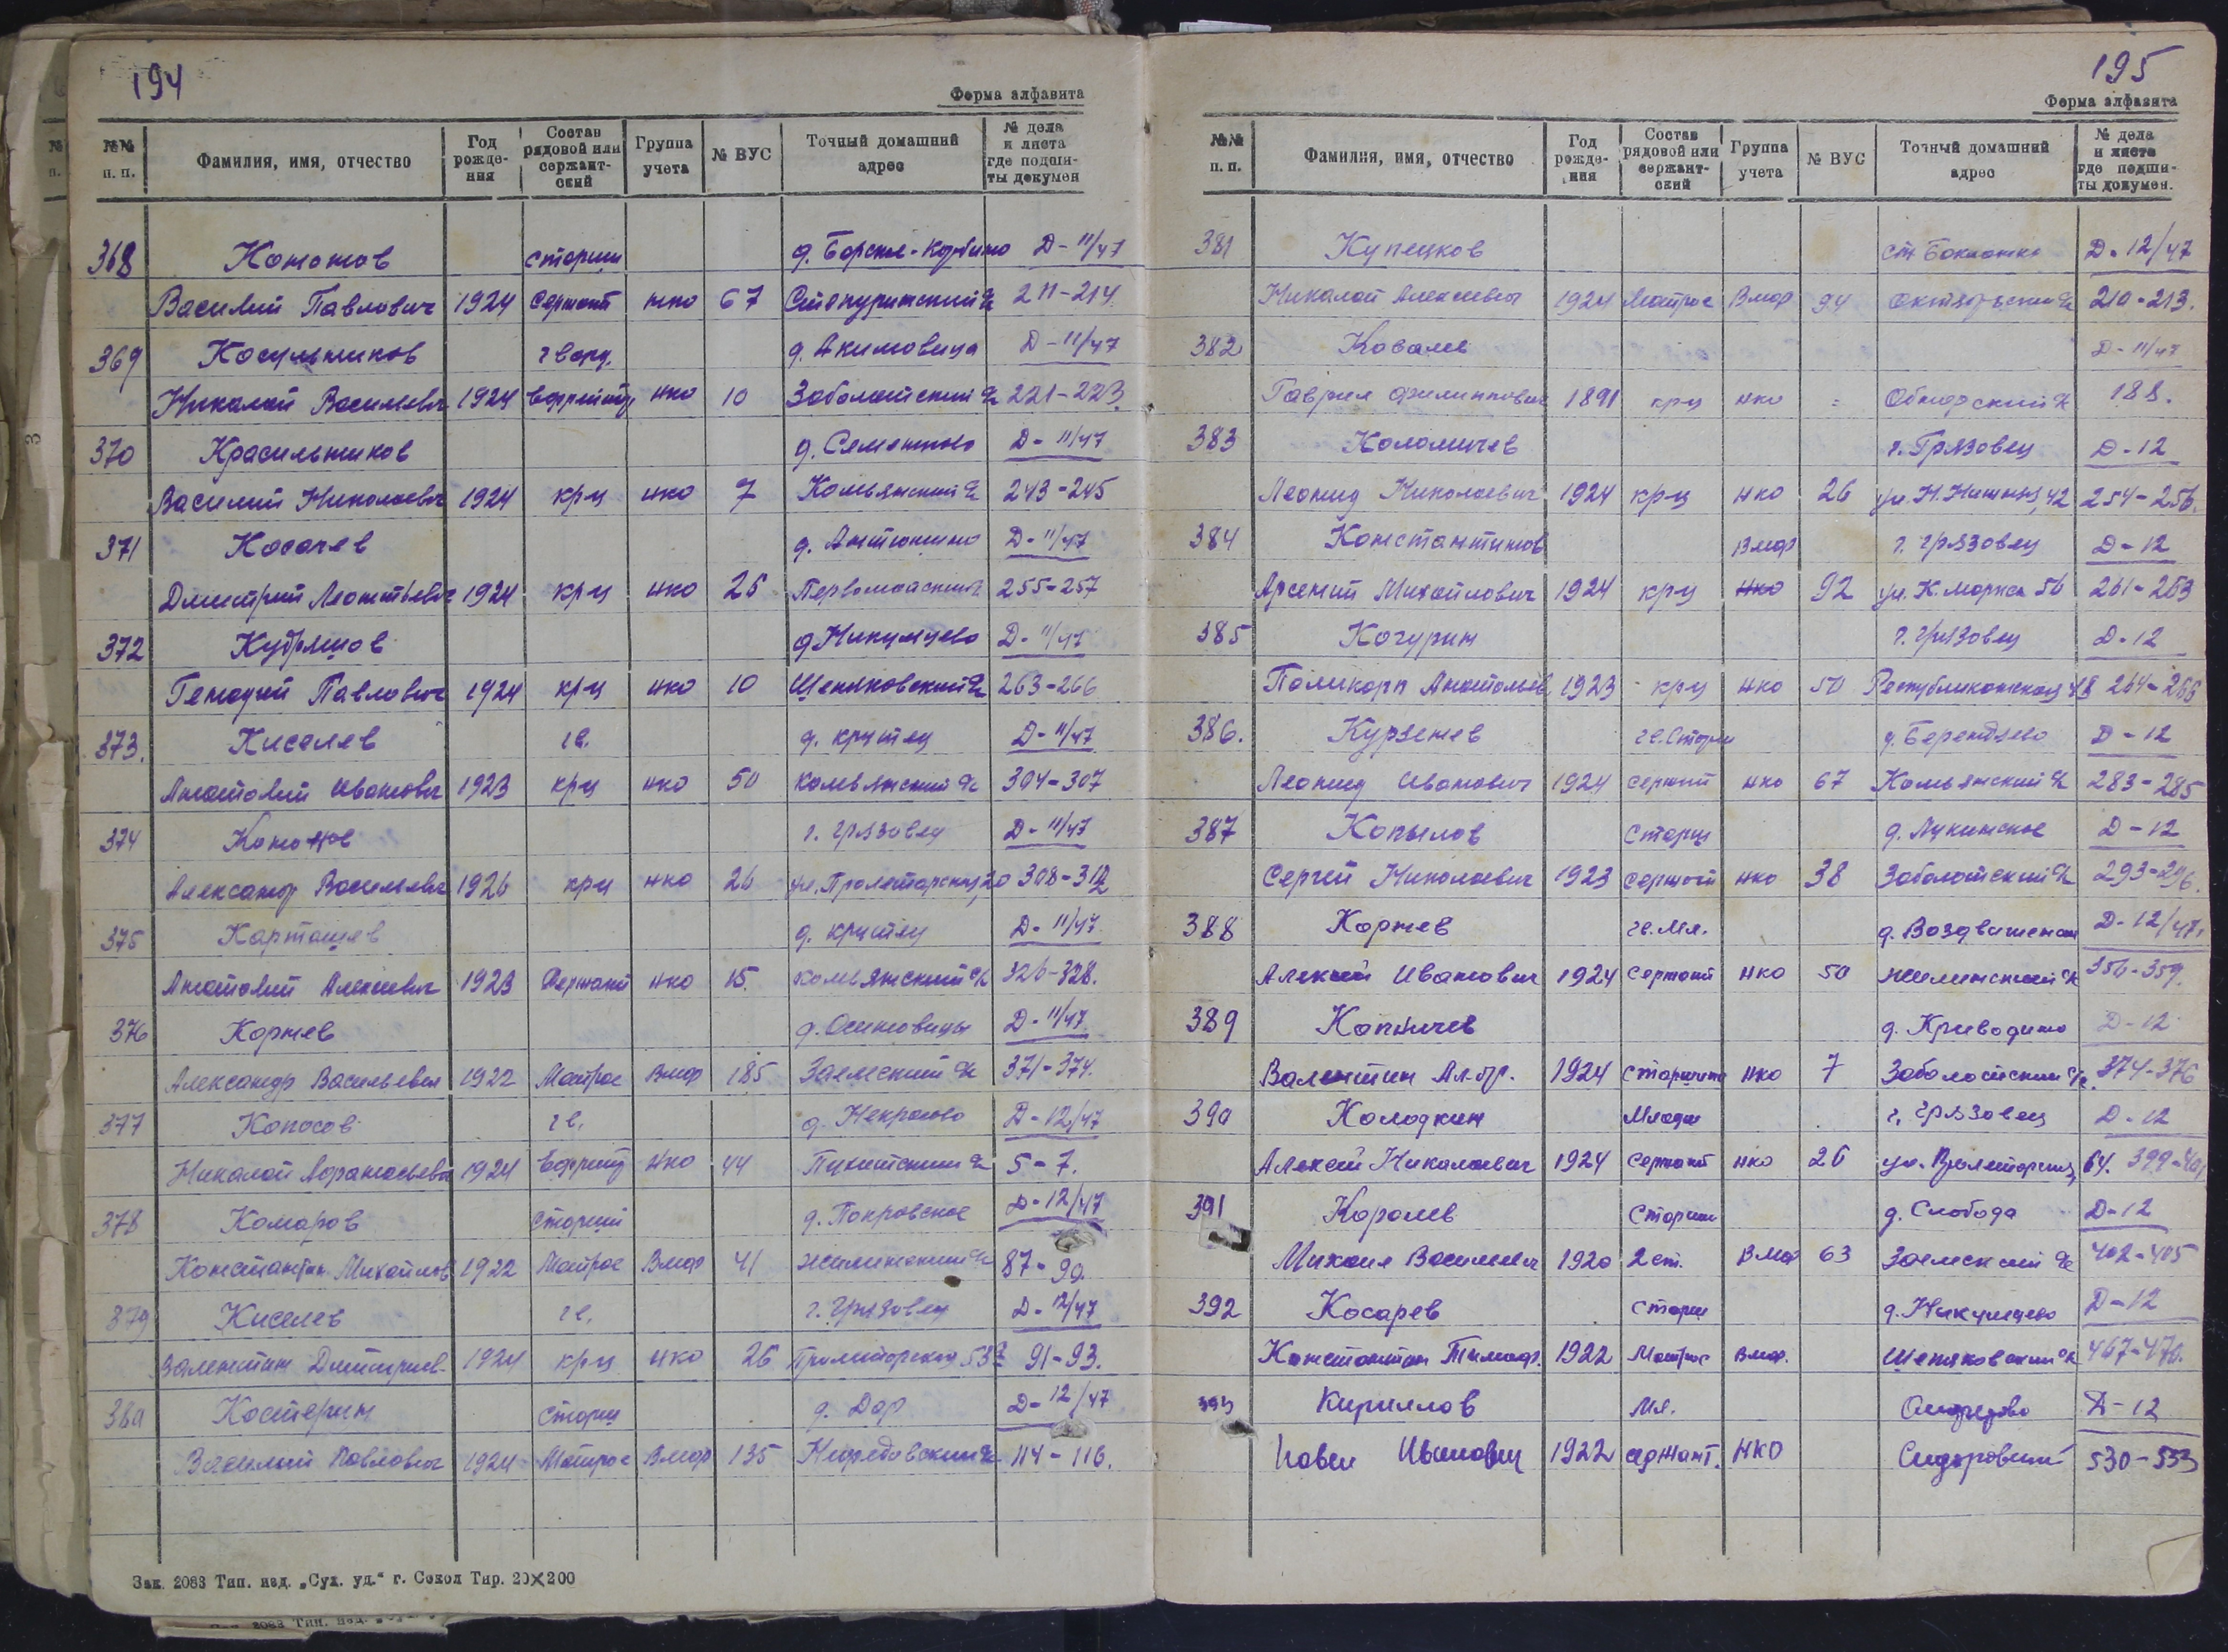 194
Форма алфавита
№№ п. п. Фамилия, имя, отчество Год рождения Состав рядовой или сержантский Группа учета № ВУС Точный домашний адрес № дела и листа где подшиты докумен
368 Кононов старши д. Борское-Корбино Д-11/47
Василий Павлович 1924 сержант нко 67 211-214.
369 Косульников гвард. д. Акимовица Д-11/47
Николай Васильевич 1924 ефрейтор нко 10 Заболотский с/с 221-223.
370 Красильников д. Семенково Д-11/47
Василий Николаевич 1924 кр-ц нко 7 Комьянский с/с 243-245
371 Косачев д. Антонино Д-11/47
Дмитрий Леонтьевич 1924 кр-ц нко 25 Первомайский 255-257
372 Кудряшов д Никулцево Д-11/47
Генадий Павлович 1924 кр-ц нко 10 Шепяковский с/с 263-266
373. Киселев гв. д. крутец Д-11/47
Анатолий Иванович 1923 крц нко 50 комьянский с/с 304-307
374 Кононов г. Грязовец Д-11/47
Александр Васильевич 1926 крц нко 26 ул. Пролетарская, 20 308-312
375 Карташев д. крутец Д-11/47
Анатолий Алексеевич 1923 сержант нко 15. комьянский с/с 326-328.
376 Корнев д. Осиновицы Д-11/47
Александр Васильевич 1922 Матрос Вмф 185 Заемский с/с 371-374.
377 Копосов гв. д. Некрасово Д-12/47
Николай Афанасьевич 1924 Ефрейт нко 44 5-7.
378 Комаров старший д. Покровское Д-12/47
Константин Михайлов 1922 Матрос Вмф 41 жилинский с/с 87-90.
379 Киселев гв. г. Грязовец Д-12/47
Валентин Дмитриев. 1924 кр-ц нко 26 Пролетарская 53 91-93.
380 Костерин старш д. Дор Д-12/47
Василий Павлович 1924 Матрос Вмф 135 Нефедовский с/с 114-116.
Зак. 2083 Тип. изд. „Сух. уд." г. Сокол Тир. 20×200
195
Форма алфавита
№№ п. п. Фамилия, имя, отчество Год рождения Состав рядовой или сержантский Группа учета № ВУС Точный домашний адрес № дела и листа где подшиты докумен.
381 Купецков ст Бакланка Д-12/47
Николай Алексеевич 1924 Матрос Вмф 94 Октябрьский с/с 210-213.
382 Ковалев Д-11/47
Гаврил Филиппович 1891 крц нко = Обнорский с/с 188.
383 Коломичев г. Грязовец Д-12
Леонид Николаевич 1924 кр-ц нко 26 254-256.
384 Константинов Вмф г. Грязовец Д-12
Арсений Михайлович 1924 кр-ц нко 92 ул. К. Маркса 56 261-263
385 Кочурин г. Грязовец Д-12
Поликарп Анатольев. 1923 крц нко 50 Республиканская 48 264-266
386. Курзенев гв. Старш д. Берендеево Д-12
Леонид Иванович 1924 сержант нко 67 Комьянский с/с 283-285
387 Копылов Старш д. Лукинское Д-12
Сергей Николаевич 1923 сержант нко 38 Заболотский с/с 293-296.
388 Корнев гв. мл. д. Воздвиженское Д-12/47.
Алексей Иванович 1924 Сержант нко 50 жилинский с/с 356-359.
389 Копничев д. Криводино Д-12
Валентин Ал-др. 1924 Старшина нко 7 Заболотский с/с. 374-376
390 Колодкин младш г. Грязовец Д-12
Алексей Николаевич 1924 сержант нко 26 ул. Пролетарская, 64. 399-401
391 Королев старши д. Слобода Д-12
Михаил Васильевич 1920 2 ст. Вмф 63 Заемский с/с 402-405
392 Косарев старш д. Никулцево Д-12
Константин Тимоф. 1922 Матрос Вмф. Шепяковский с/с 467-470.
393 Кириллов мл. Сидорово Д-12
Павел Иванович 1922 сержант. НКО Сидоровский 530-533